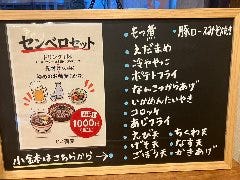 センベロセット
1000円
小鉢はこちらから→
もつ煮
豚ロースみそ焼き
えだまめ
冷ややっこ
ポテトフライ
なんこつからあげ
いかめんたいやき
コロッケ
あじフライ
えび天
ちくわ天
げそ天
なす天
ごぼう天
かきあげ